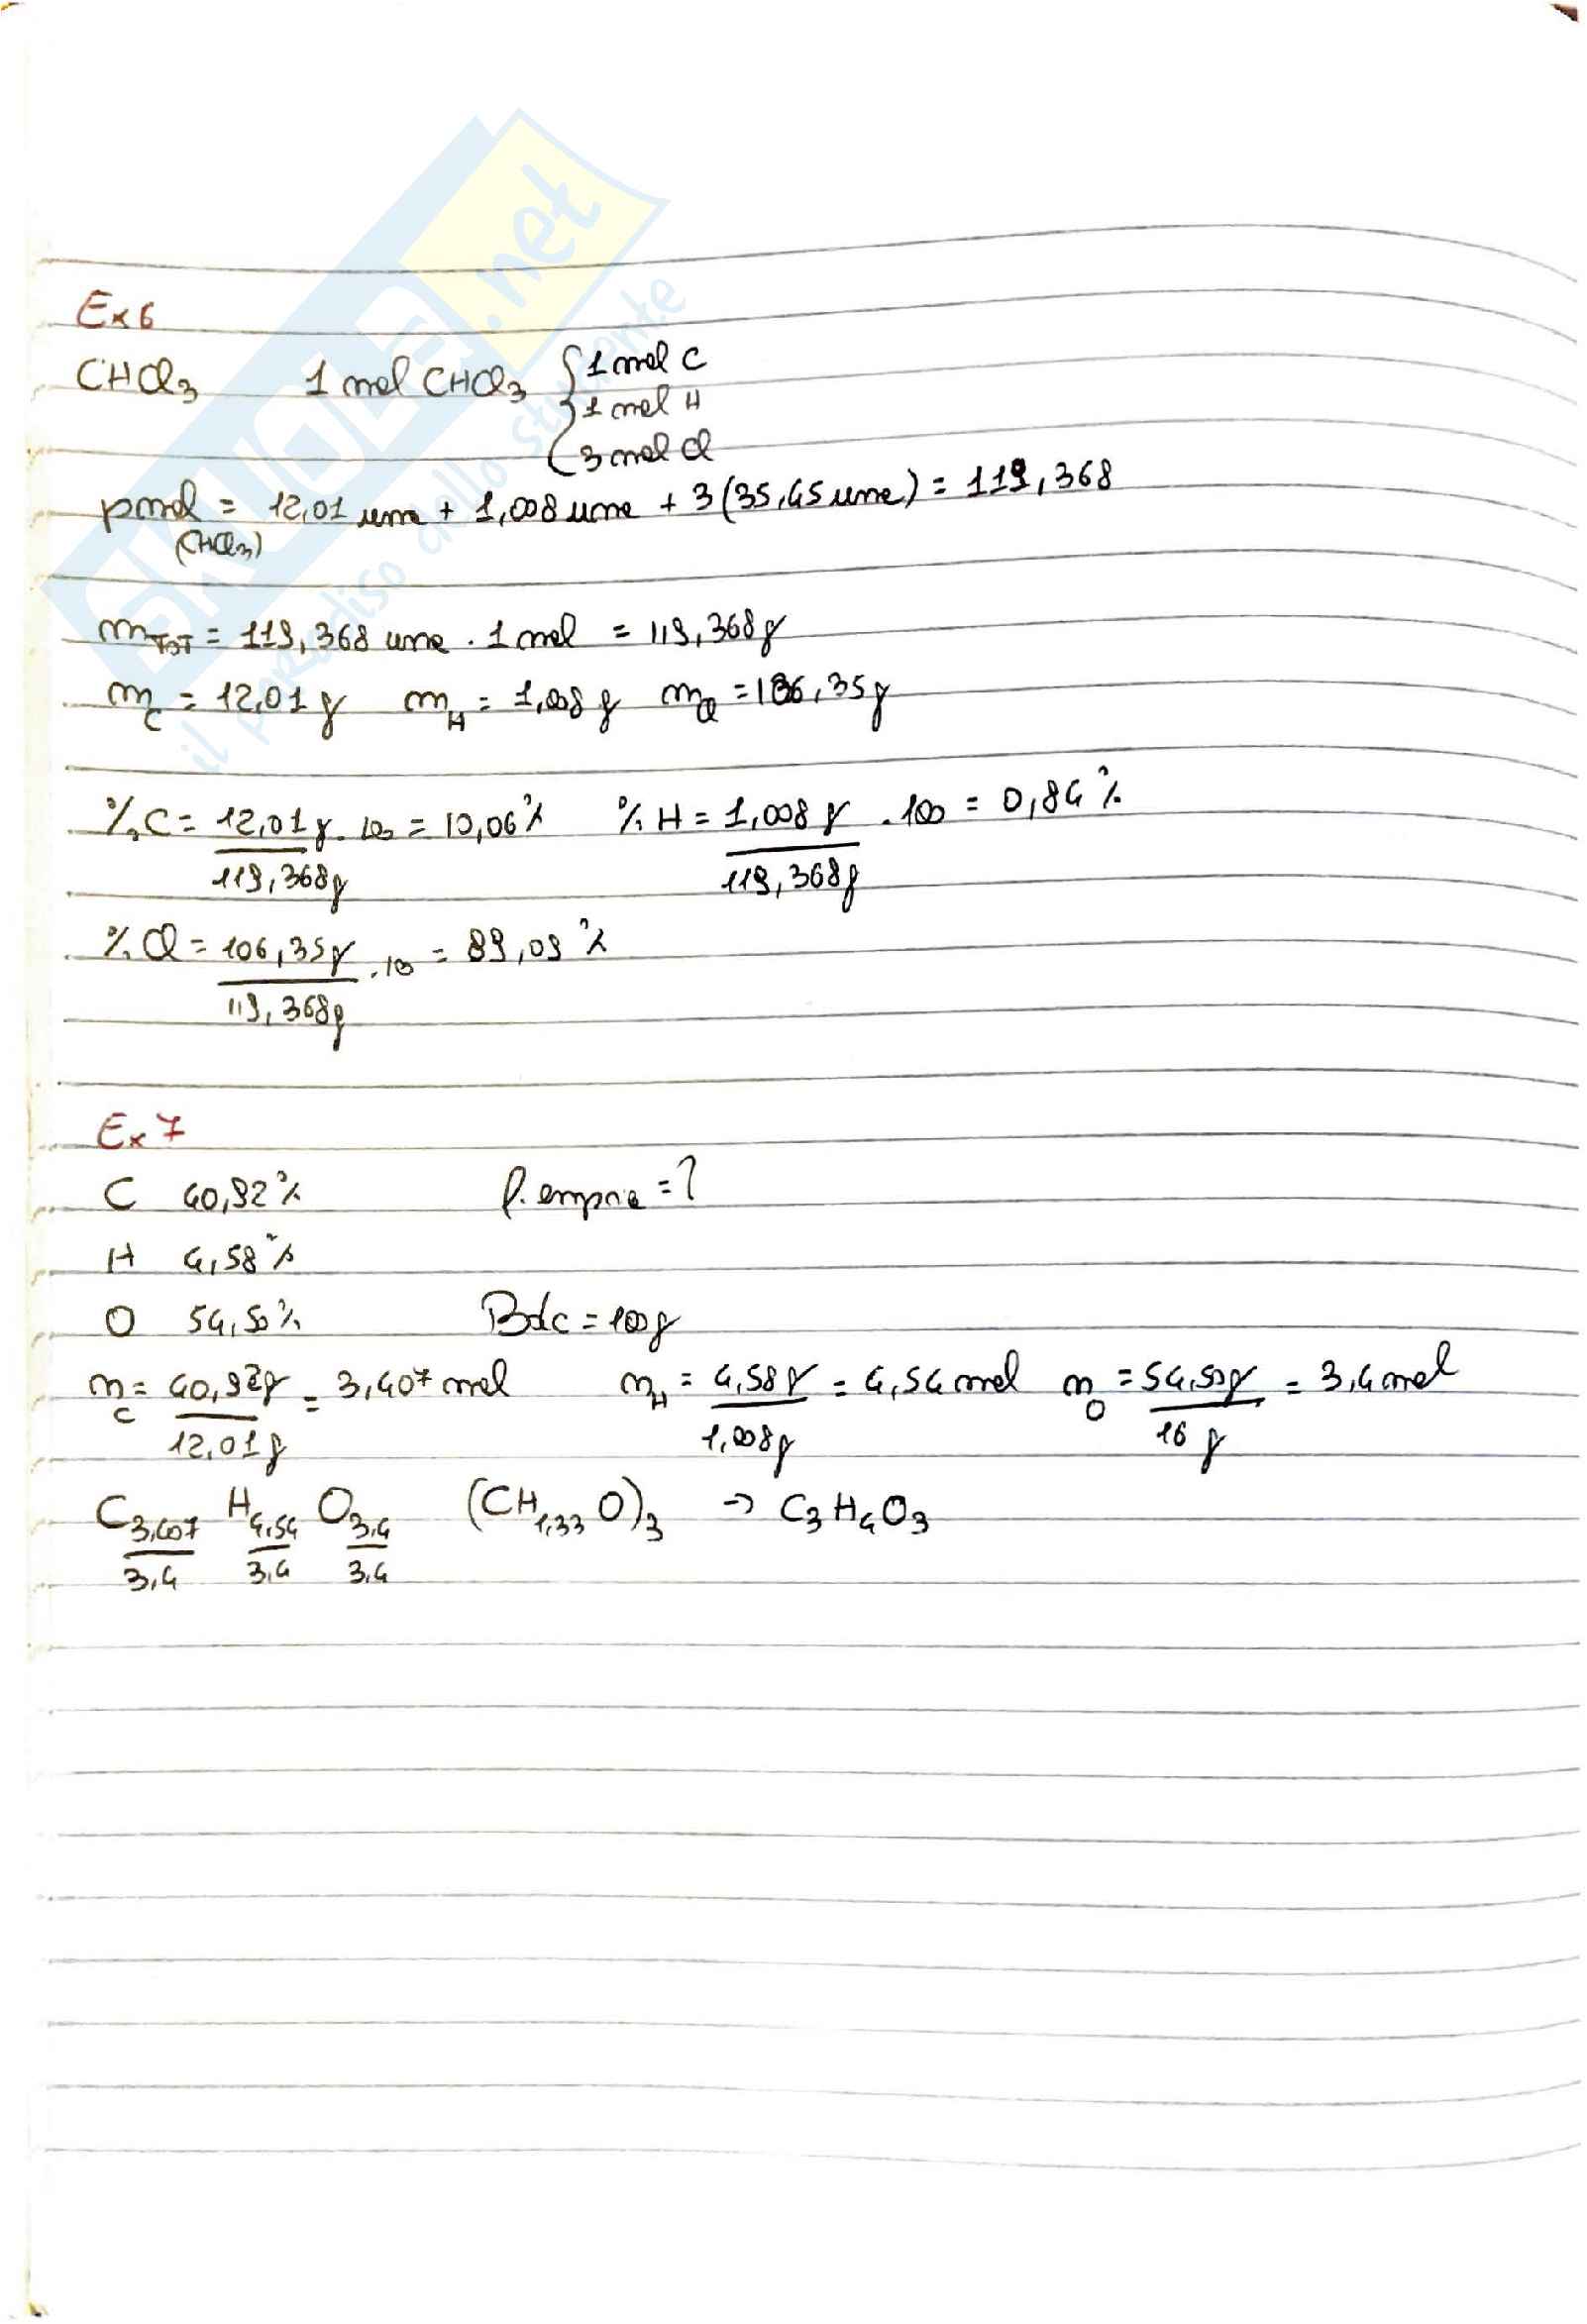 SKUOLA.net
il paradiso dello studente
Ex 6
CHCl3 1 mol CHCl3 { 1 mol C
1 mol H
3 mol Cl
pmol (CHCl3) = 12,01 uma + 1,008 uma + 3 (35,45 uma) = 119,368
mTOT = 119,368 uma · 1 mol = 119,368 g
mC = 12,01 g mH = 1,008 g mCl = 106,35 g
% C = 12,01 g / 119,368 g · 100 = 10,06 % % H = 1,008 g / 119,368 g · 100 = 0,84 %
% Cl = 106,35 g / 119,368 g · 100 = 89,09 %
Ex 7
C 40,92 % f. empirica = ?
H 4,58 %
O 54,50 % Bdc = 100 g
nC = 40,92 g / 12,01 g = 3,407 mol nH = 4,58 g / 1,008 g = 4,54 mol nO = 54,50 g / 16 g = 3,4 mol
C 3,407/3,4 H 4,54/3,4 O 3,4/3,4 (CH1,33O)3 → C3H4O3